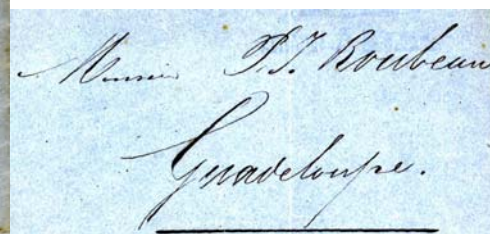 Monsieur P. J. Roubeau
Guadeloupe.